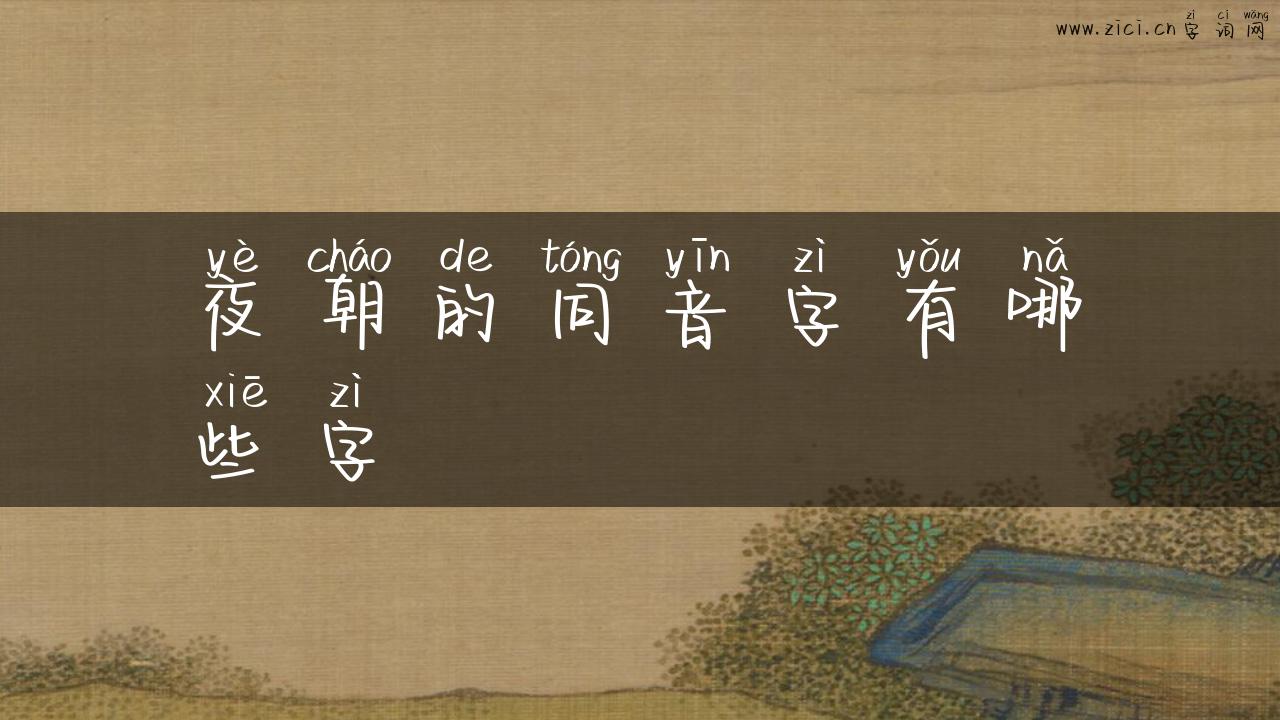 zì cí wǎng
www.zici.cn 字词网
yè cháo de tóng yīn zì yǒu nǎ
夜朝的同音字有哪
xiē zì
些字